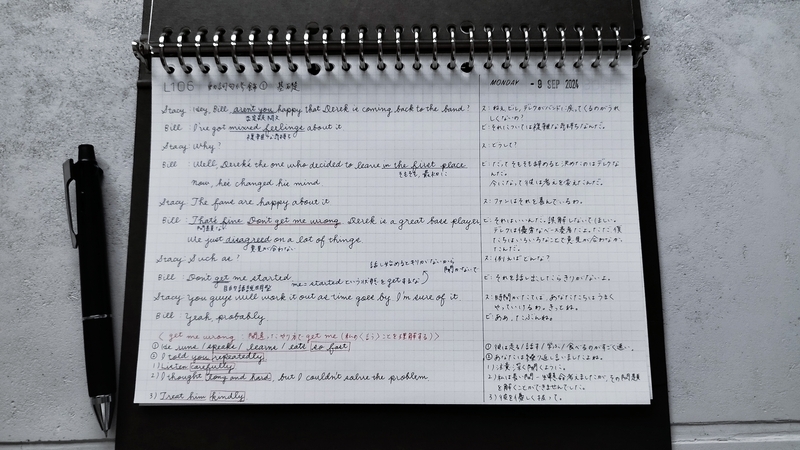 L106 動詞句修飾① 基礎
MONDAY - 9 SEP 2024
Stacy: Hey, Bill aren't you happy that Derek is coming back to the band?
否定疑問文
ス:ねえ、ビル、デレクがバンドに戻ってくるのがうれしくないの?
Bill: I've got mixed feelings about it
複雑な気持ち
ビ:それについては複雑な気持ちなんだ。
Stacy: Why?
ス:どうして?
Bill: Well, Derek's the one who decided to leave in the first place
そもそも、最初に
ビ:だってそもそも辞めると決めたのはデレクなんだ。
Now, he's changed his mind
今になって彼は考えを変えたんだ。
Stacy: The fans are happy about it
ス:ファンはそれを喜んでいるわ。
Bill: That's fine Don't get me wrong. Derek is a great bass player,
問題ない
ビ:それはいいんだ。誤解しないでほしい。
デレクは優秀なベース奏者だよ。ただ、僕たちはいろいろなことで意見が合わなかったんだ。
We just disagreed on a lot of things.
意見が合わない
Stacy: Such as?
ス:例えばどんな?
話し始めるときりがないから
Bill: Don't get me started
me=startedという状態をgetするな
ビ:それを話し出したらきりがないよ。
Stacy: You guys will work it out as time goes by, I'm sure of it.
ス:時間がたてば、あなたたちはうまくやっていけるわ。きっとね。
Bill: Yeah, probably
ビ:ああ、たぶんね。
① He runs / speaks / learns / eats so fast
①彼は走る/話す/学ぶ/食べるのがすごく速い。
② I told you repeatedly
②あなたには繰り返し言いましたよね。
1) Listen carefully
1)注意深く聞くように。
2) I thought long and hard, but I couldn't solve the problem.
2)私は長い間一生懸命考えましたが、その問題を解くことができませんでした。
3) Treat him kindly
3)彼を優しく扱って。